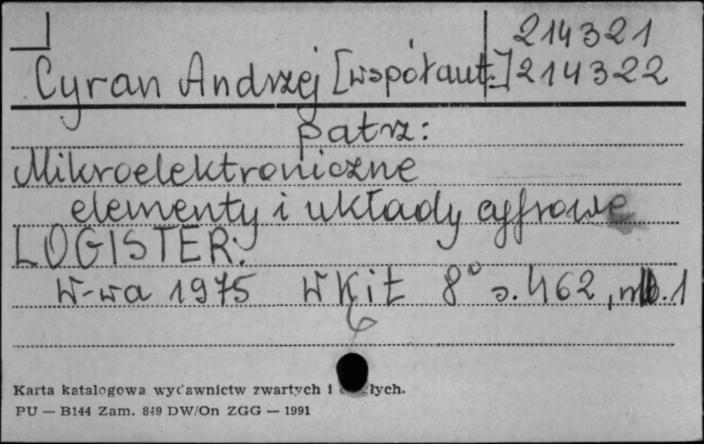 214321
Cyran Andrzej [współaut.] 214322
patrz:
Mikroelektroniczne
elementy i układy cyfrowe
LOGISTER.
W-wa 1975 WKiŁ 8° s. 462, nlb. 1
Karta katalogowa wydawnictw zwartych i ciągłych.
PU — B144 Zam. 849 DW/On ZGG — 1991